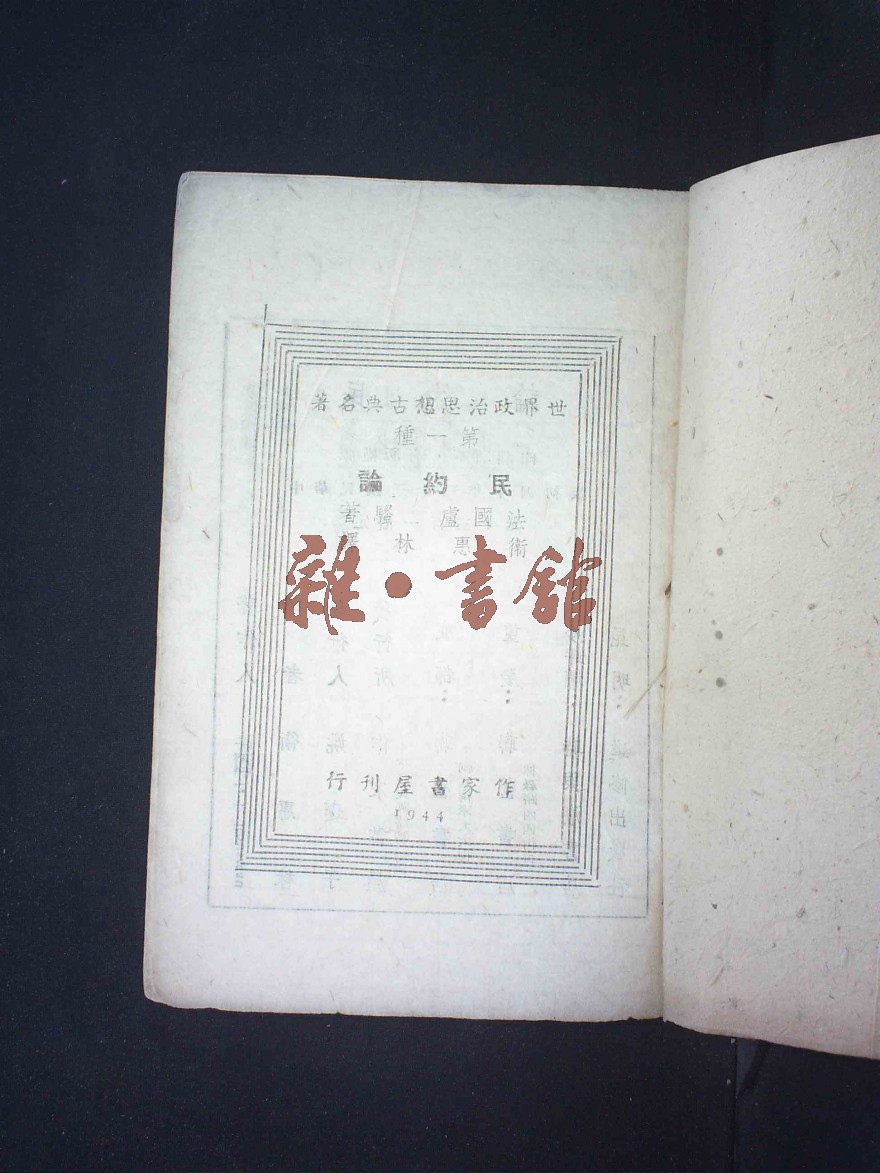 世界政治思想古典名著
第一種
民約論
法國盧騷著
衛惠林譯
雜·書館
作家書屋刊行
1944